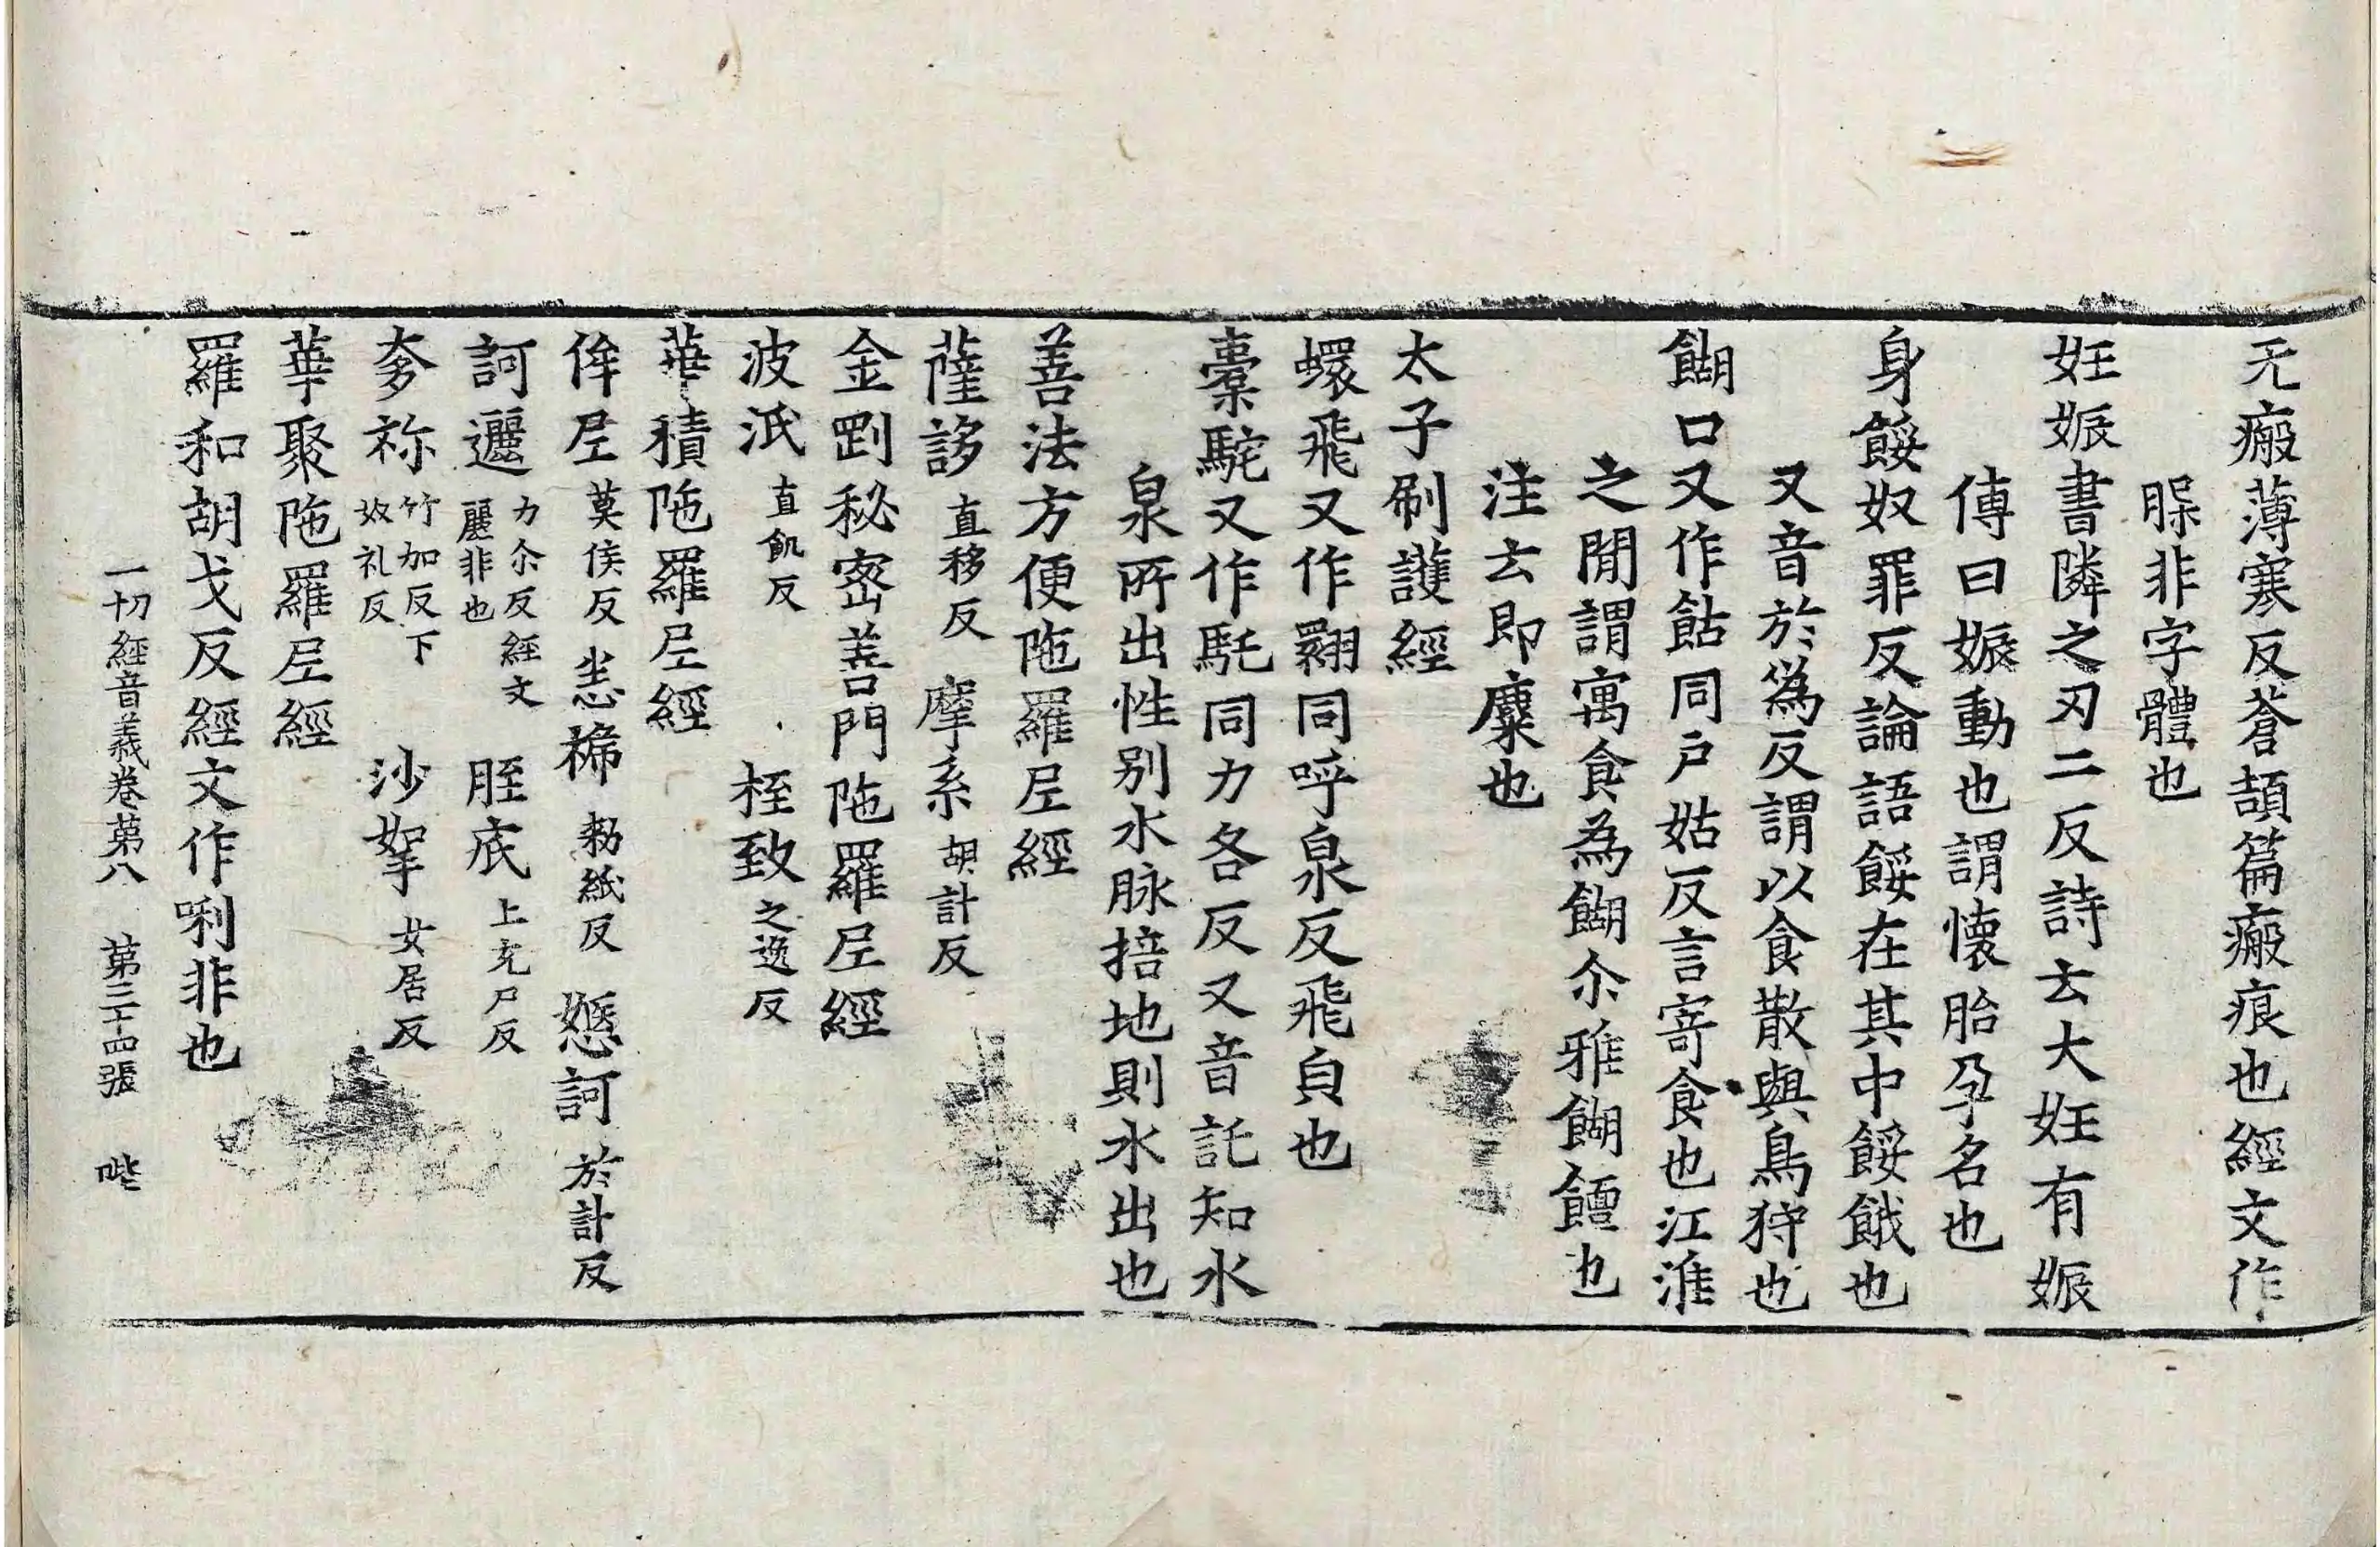 无瘢薄寒反蒼頡篇瘢痕也經文作
腜非字體也
妊娠書隣之刃二反詩云大妊有娠
傳曰娠動也謂懷胎孕名也
身餧奴罪反論語餧在其中餧餓也
又音於為反謂以食散與鳥狩也
餬口又作䬢同户姑反言寄食也江淮
之閒謂寓食為餬尒雅餬饘也
注云即麋也
太子刷護經
蠉飛又作翾同呼泉反飛皃也
橐駞又作馲同力各反又音託知水
泉所出性別水脉掊地則水出也
善法方便陁羅尼經
薩誃直移反 摩系胡計反
金剛秘密善門陁羅尼經
波泜直飢反 桎致之逸反
華積陁羅尼經
侔尼莫侯反 恙褅勑紙反 嬺訶於計反
訶邐力尒反經文麗非也 胵底上充尸反
奓祢竹加反下奴礼反 沙挐女居反
華聚陁羅尼經
羅和胡戈反經文作唎非也
一切經音義卷第八 第三十四張